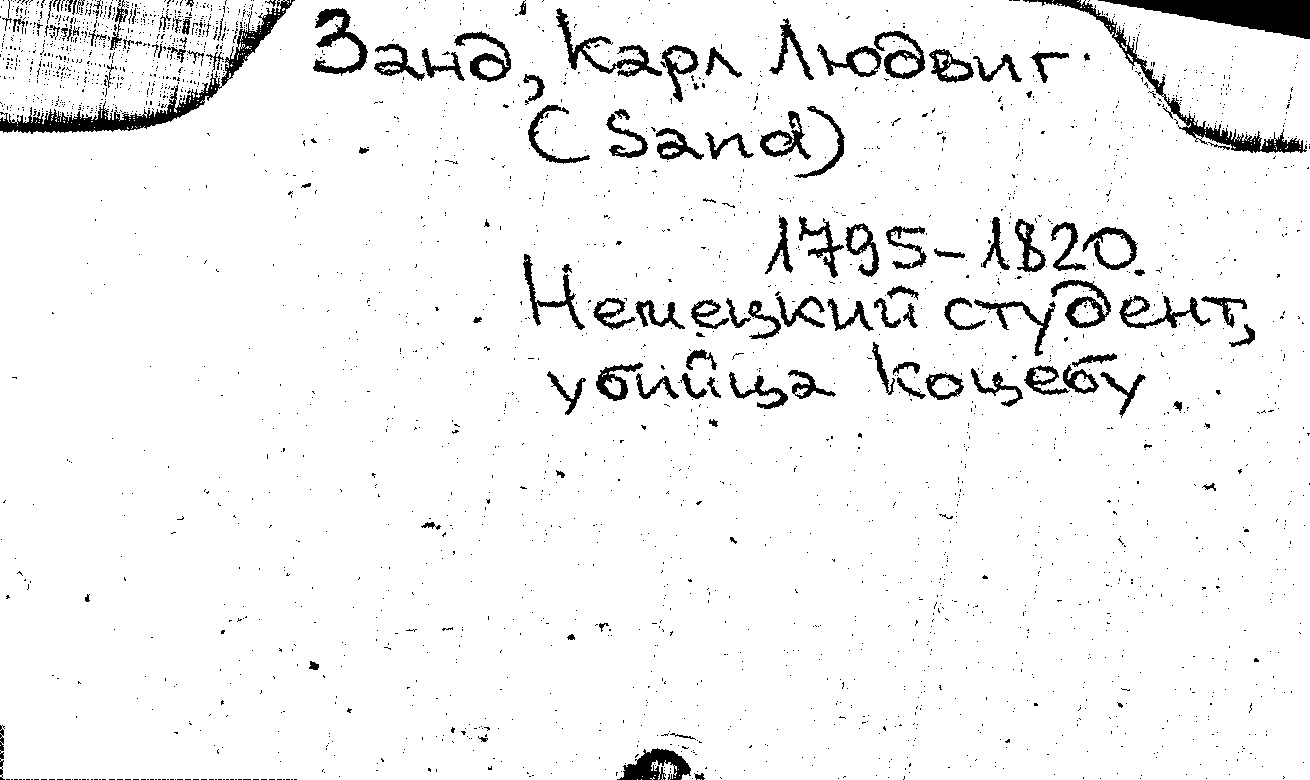 Занд, Карл Людвиг.
(Sand)
1795-1820.
Немецкий студент,
убийца Коцебу